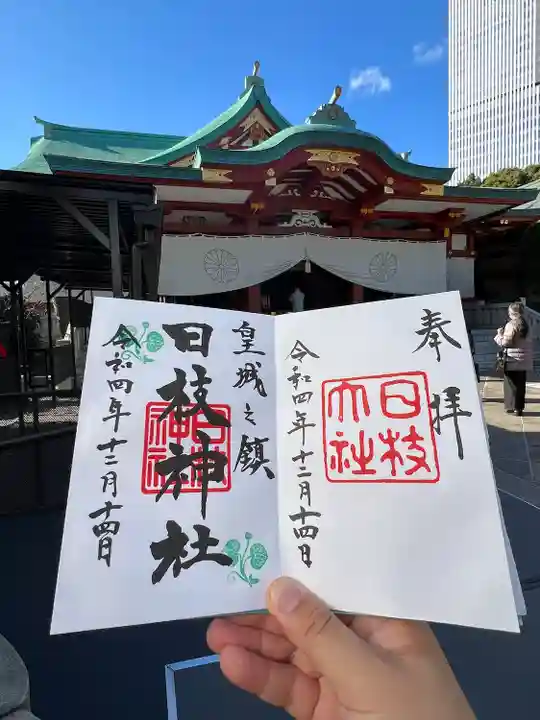 奉拝
日枝
大社
令和四年十二月十四日
皇城之鎮
日枝神社
令和四年十二月十四日